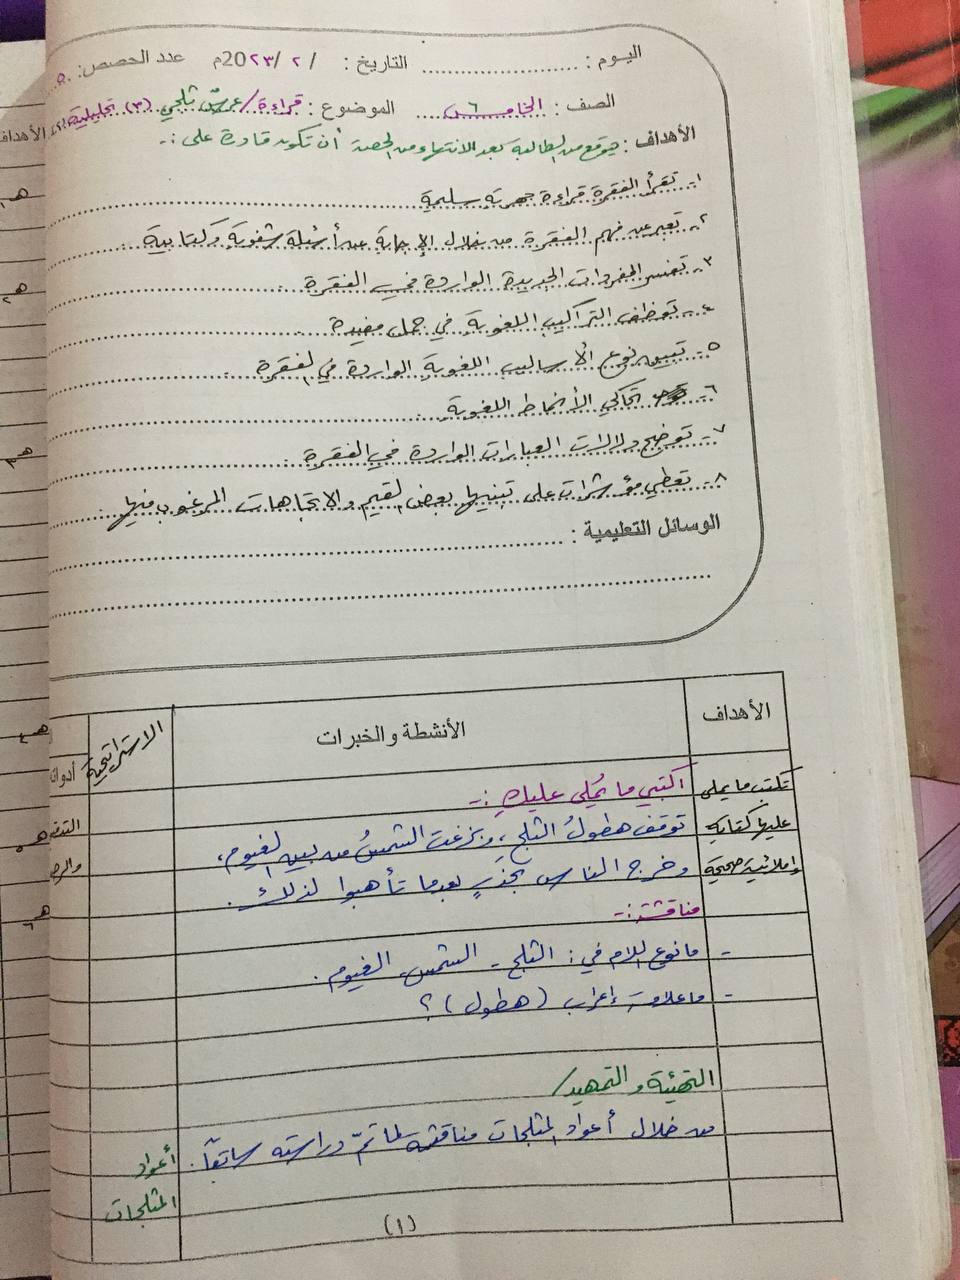 اليوم : ........................ التاريخ : / ٢ / ٢٠٢٣م عدد الحصص: ٥
الصف : الخامس ٦ الموضوع : قراءة / عرسٌ ثلجي (٣) تحليلية
الأهداف : يتوقع من الطالبة بعد الانتهاء من الحصة أن تكون قادرة على :-
١- تقرأ الفقرة قراءة جهرية سليمة
٢- تعبر عن فهم الفقرة من خلال الإجابة عن أسئلة شفوية وكتابية .
٣- تفسر المفردات الجديدة الواردة في الفقرة .
٤- توظف التراكيب اللغوية في جمل مفيدة
٥- تبين نوع الأساليب اللغوية الواردة في الفقرة .
٦- تحاكي الأنماط اللغوية .
٧- توضح دلالات العبارات الواردة في الفقرة .
٨- تعطي مؤشرات على تبنيها بعض القيم والاتجاهات المرغوب فيها .
الوسائل التعليمية :
الأهداف الأنشطة والخبرات الاستراتيجية أدوات
تكتب ما يملى اكتبي ما يُملى عليكِ :-
عليها كتابة توقف هطولُ الثلج ، وبزغت الشمسُ من بين الغيوم ،
وإملائية صحيحة وخرج الناس بحذرٍ بعدما تأهبوا لذلك .
مناقشة :-
- ما نوع اللام في : الثلج - الشمس الغيوم .
- ما علامة إعراب (هطول) ؟
التهيئة والتمهيد /
من خلال أعواد المثلجات مناقشة لما تمّ دراسته سابقاً . أعواد
المثلجات
(١)
الأهداف
هـ١
هـ٢
هـ٣
هـ٤
هـ٥
هـ٦